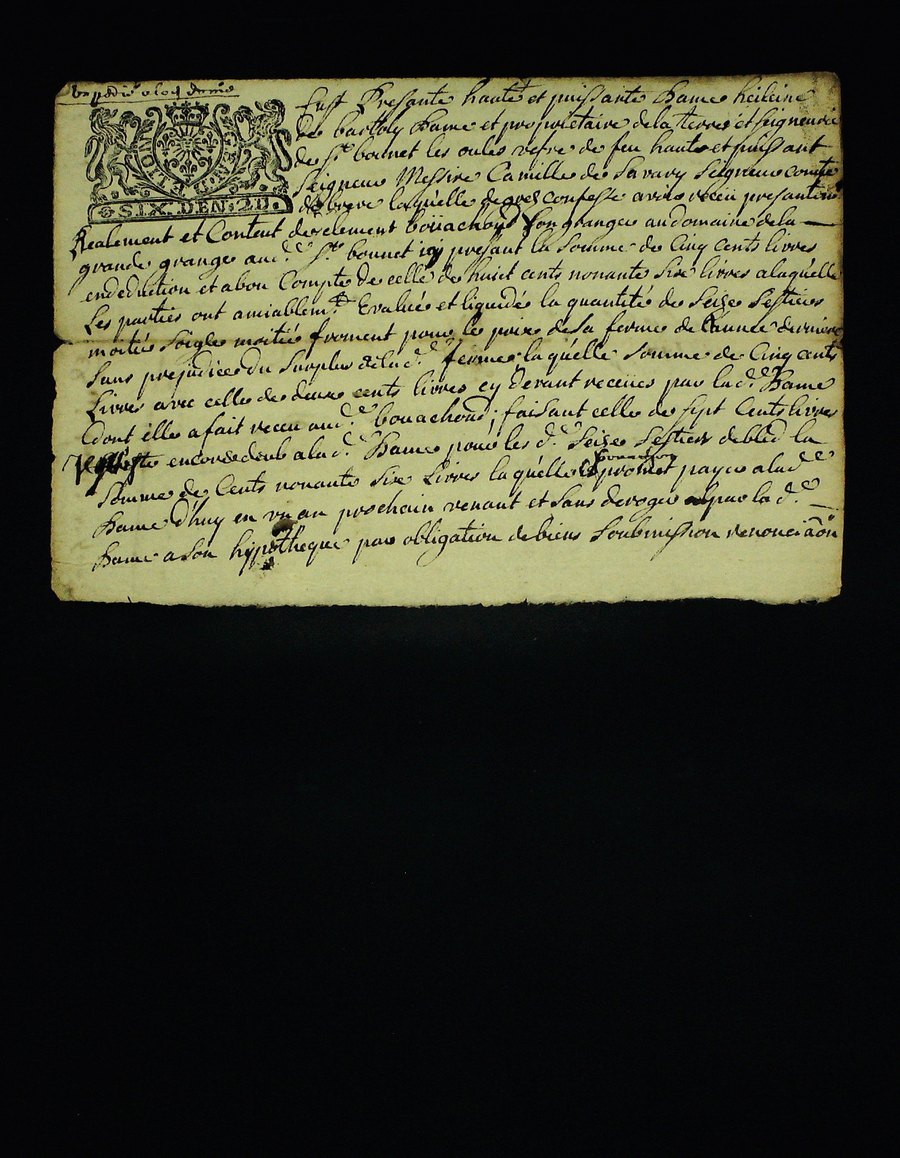 SIX. DEN: 2D.
Fust Presante haute et puissante Dame heileine
de bartoly Dame et propriétaire dela terre et seigneurie
de St. bonnet les oules vefve de feu haut et puissant
Seigneur Messire Camille de Savary Seigneur comte
de breve laquélle de gred confesse avoir receu presantemt
Réalement et Content de clement boüachond son granger au domaine dela
grande grange aud. St. bonnet icy presant la Somme de Cinq Cents livres
en deduction et a bon Compte de celle de huict cents nonante six livres a laquélle
Les parties ont amiablemt. Evaluée et liquidé la quantité de Seize Sestiers
moitié Soigle moitié froment pour le prix de sa ferme de l'année derniere
Sans prejudice du Surplus de lad. ferme, laquélle somme de Cinq cents
Livres avec celle de deux cents livres cy devant receües par lad. Dame
dont élle a fait receu aud. bouachond; faisant celle de sept Cents livres
reste encore deub a lad. Dame pour les d. Seize Sestiers de bled la
Somme de Cents nonante six Livres laquélle bouachon promet payer a lad.
Dame d'huy en un an prochain venant et Sans deroger par lad.
Dame a son hypotheque par obligation de biens Soubmission renonciaon